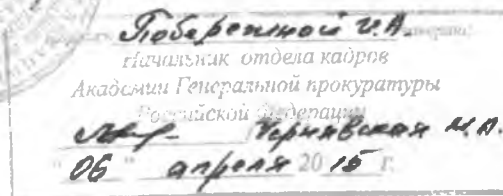 Побережной И.А.
Начальник отдела кадров
Академии Генеральной прокуратуры
Российской Федерации
Чернявская И.А.
"06" апреля 2015 г.